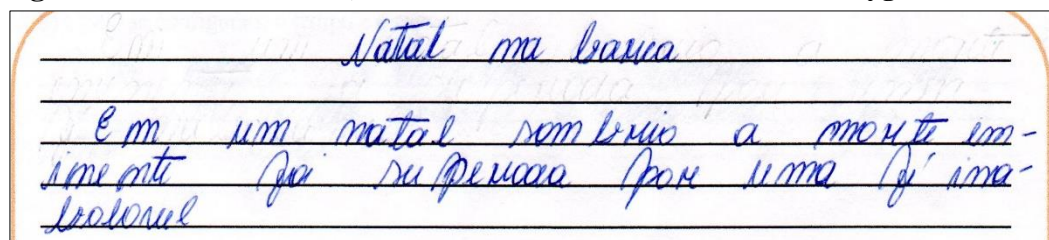 Natal na barca
Em um natal sombrio a morte im-
inente foi superada por uma fé ina-
balavel